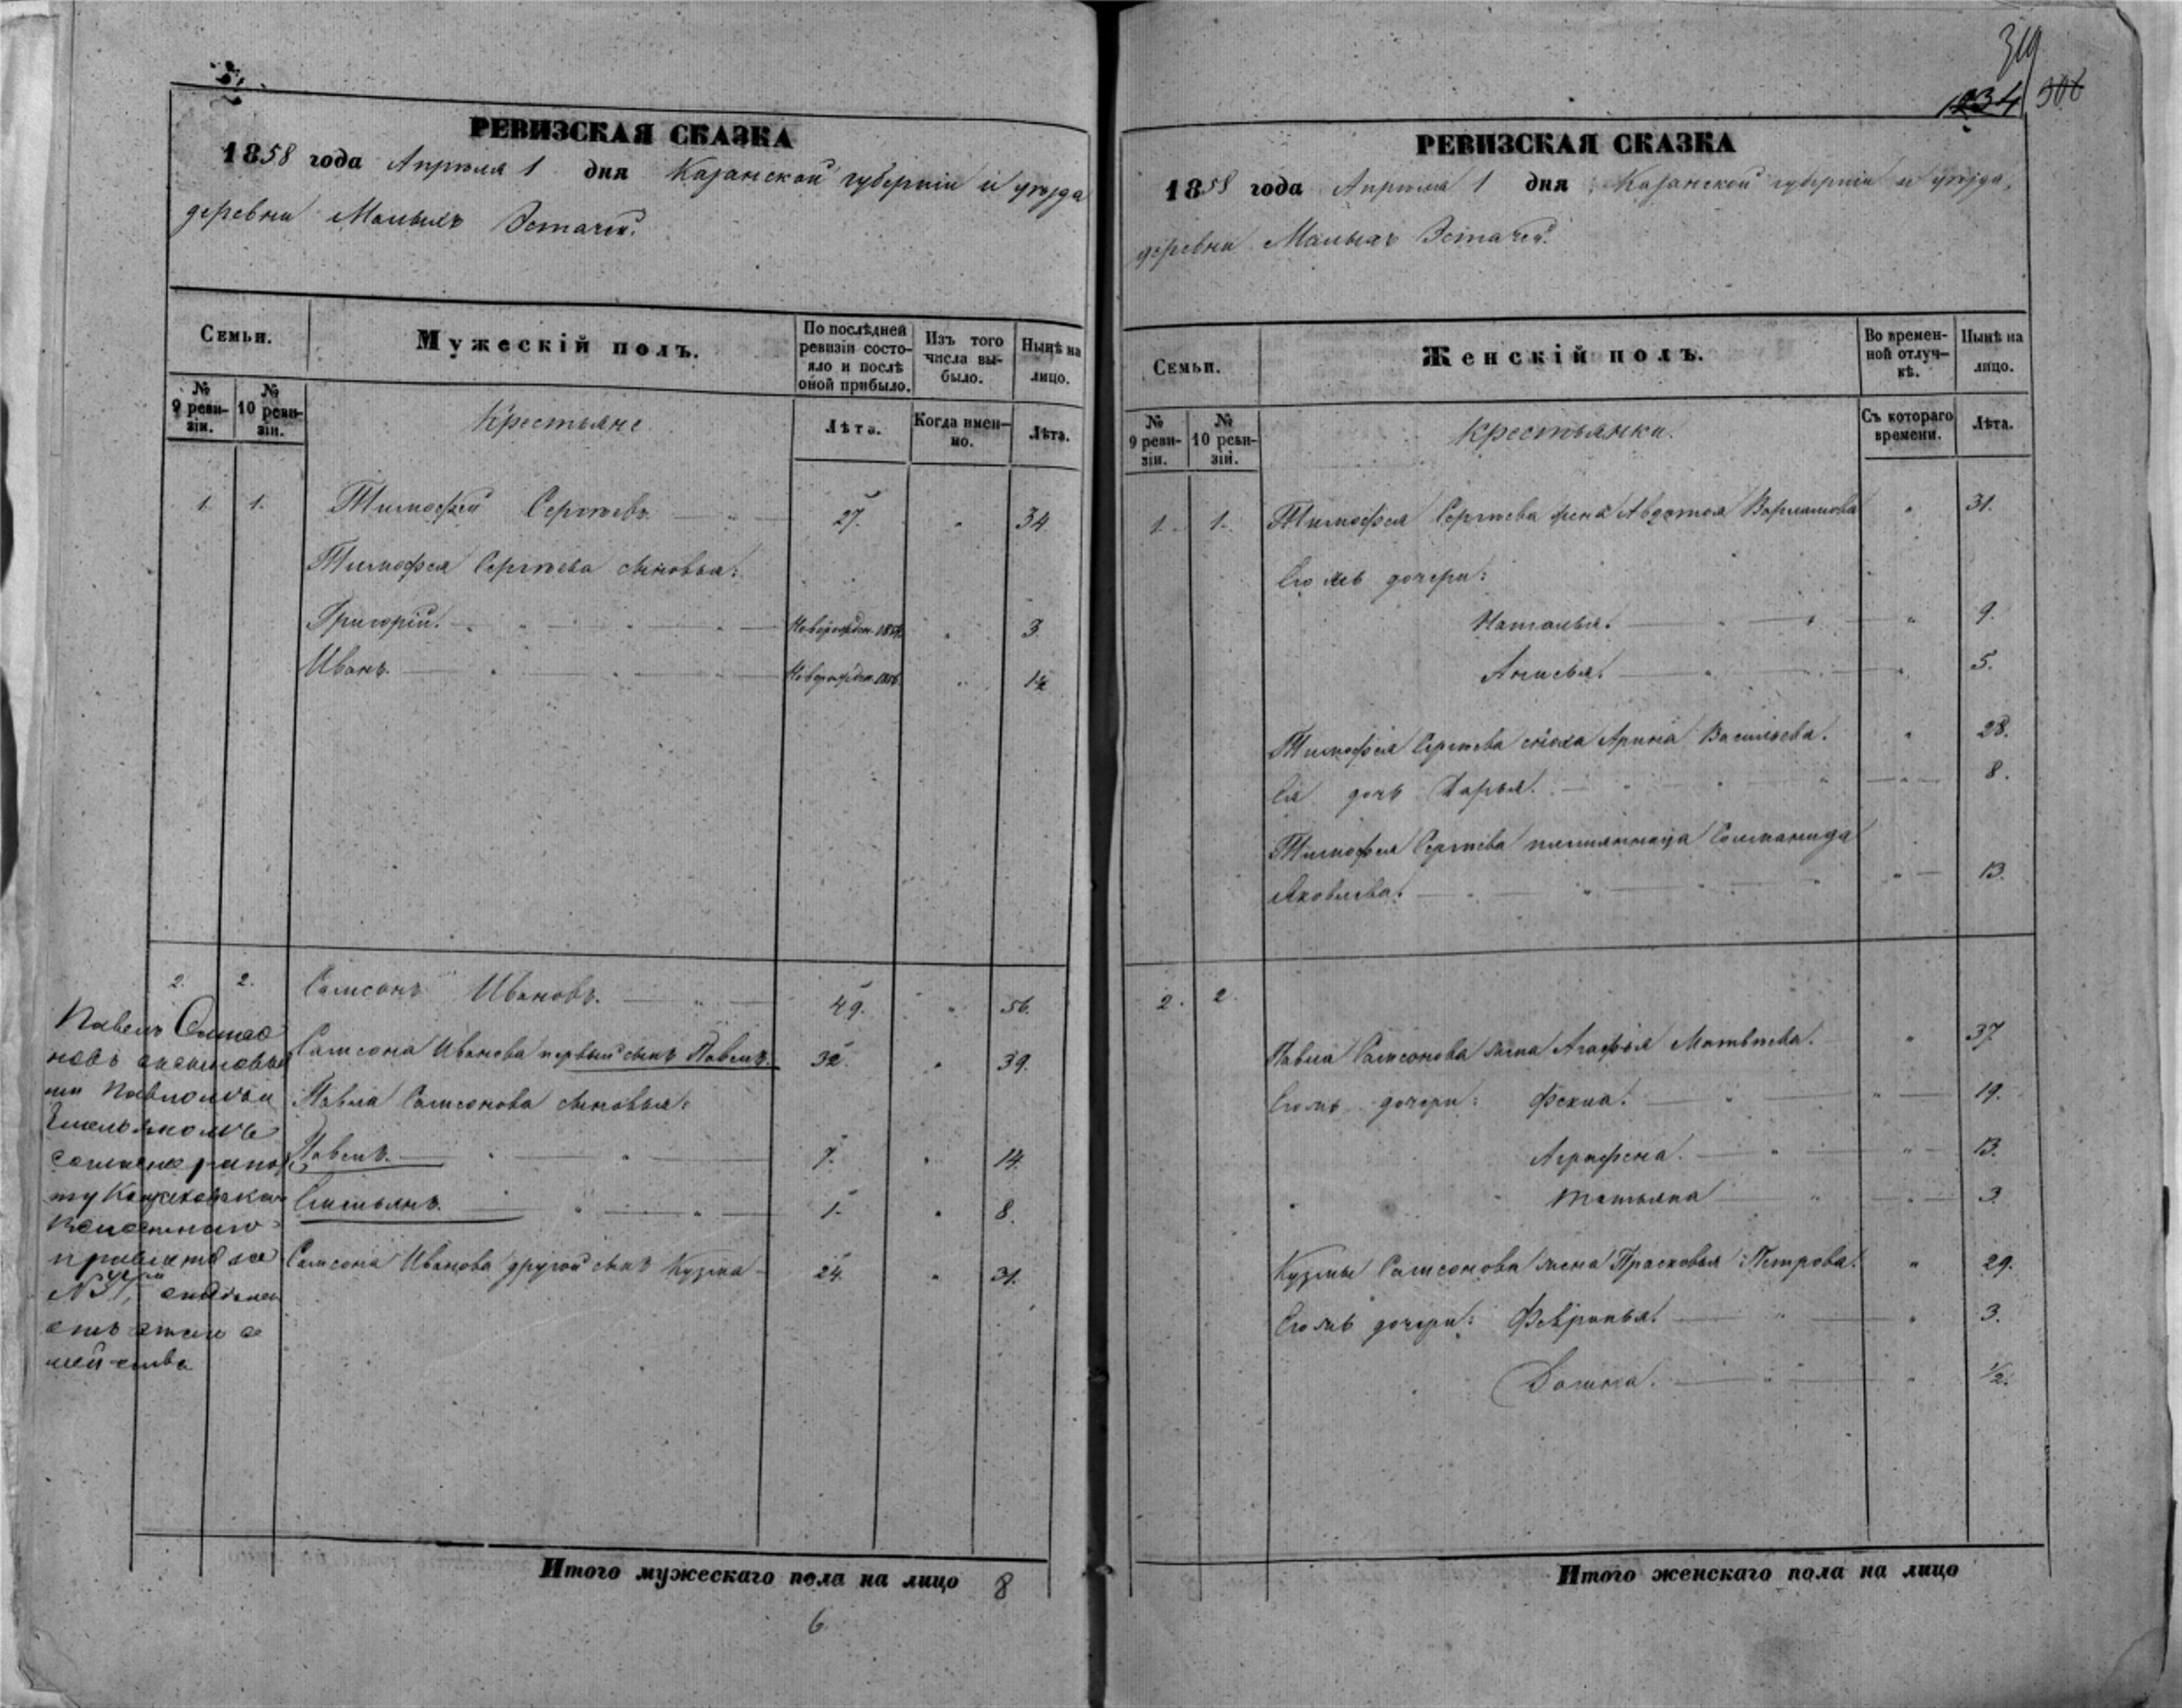 РЕВИЗСКАЯ СКАЗКА
1858 года Апрѣля 1 дня Казанской губерніи и уѣзда
деревни Малыхъ Эстачей.
Семьи.
Мужескій полъ.
По послѣдней ревизіи состояло и послѣ оной прибыло.
Изъ того числа выбыло.
Нынѣ на лицо.
№ 9 ревизіи.
№ 10 ревизіи.
Крестьяне
Лѣта.
Когда именно.
Лѣта.
1. 1. Тимофей Сергѣевъ 27. " 34.
Тимофея Сергѣева сыновья:
Григорій. Новорожден. " 3.
Иванъ. Новорожден. 1856. "
2. 2. Самсонъ Ивановъ. 49. " 56.
Самсона Иванова первый сынъ Павелъ. 32. " 39.
Павла Самсонова сыновья:
Павелъ. 7. " 14.
1. " 8.
Самсона Иванова другой сынъ Кузма 24. " 31.
Павелъ
новъ
правленія за
мейства
Итого мужескаго пола на лицо 8
6
319
1234 306
РЕВИЗСКАЯ СКАЗКА
1858 года Апрѣля 1 дня Казанской губерніи и уѣзда,
деревни Малыхъ Эстачей.
Семьи.
Женскій полъ.
Во временной отлучкѣ.
Нынѣ на лицо.
№ 9 ревизіи.
№ 10 ревизій.
Крестьянки.
Съ котораго времени.
Лѣта.
1. 1. Тимофея Сергѣева жена Авдотья Варламова " 31.
Его жъ дочери:
Наталья. " 9.
Анисья. " 5.
Тимофея Сергѣева сноха Арина Васильева. " 28.
Ея дочь Дарья. " 8.
Тимофея Сергѣева племянница Соломанида
Яковлева. " 13.
2. 2.
Павла Самсонова жена Агафья Матвѣева. " 37.
Его жъ дочери: Фекла. " 19.
Аграфена. " 13.
Татьяна " 3.
Кузмы Самсонова жена Прасковья Петрова. " 29.
Его жъ дочери: Февронья. " 3.
Домна. " 1/2.
Итого женскаго пола на лицо